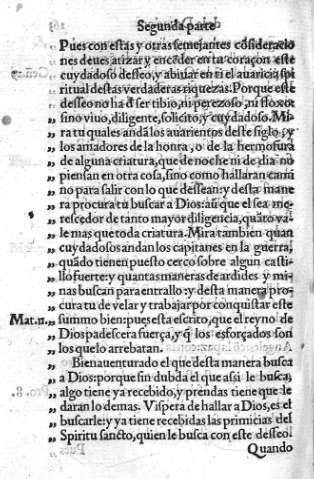 Segunda parte
Pues con estas y otras semejantes cōsideracio
nes deues atizar y encēder en tu coraçon este
cuydadoso desseo, y abiuar en ti el auaricia spi
ritual destas verdaderas riquezas. Porque este
desseo no ha ď ser tibio, ni perezoso, ni floxo:
sino viuo, diligente, solicito, y cuydadoso. Mi
ra tu quales andā los auarientos deste siglo, y
los amadores de la honra, o de la hermosura
de alguna criatura, que de noche ni de dia no
piensan en otra cosa, sino como hallaran cami
no para salir con lo que dessean: y desta mane
ra procura tu buscar a Dios: aū que el sea me-
rescedor de tanto mayor diligencia, quāto va-
le mas que toda criatura. Mira tambien quan
cuydadosos andan los capitanes en la guerra,
quādo tienen puesto cerco sobre algun casti-
llo fuerte: y quantas maneras de ardides y mi-
nas buscan para entrallo: y desta manera pro-
cura tu de velar y trabajar por conquistar este
Mat. 11. summo bien: pues esta escrito, que el reyno de
Dios padescera fuerça, y q̄ los esforçados son
los que lo arrebatan.
Bienauenturado el que desta manera busca
a Dios: porque sin dubda el que assi le busca,
algo tiene ya recebido, y prendas tiene que le
daran lo demas. Vispera de hallar a Dios, es el
buscarle: y ya tiene recebidas las primicias del
Spiritu sancto, quien le busca con este desseo.
Quando